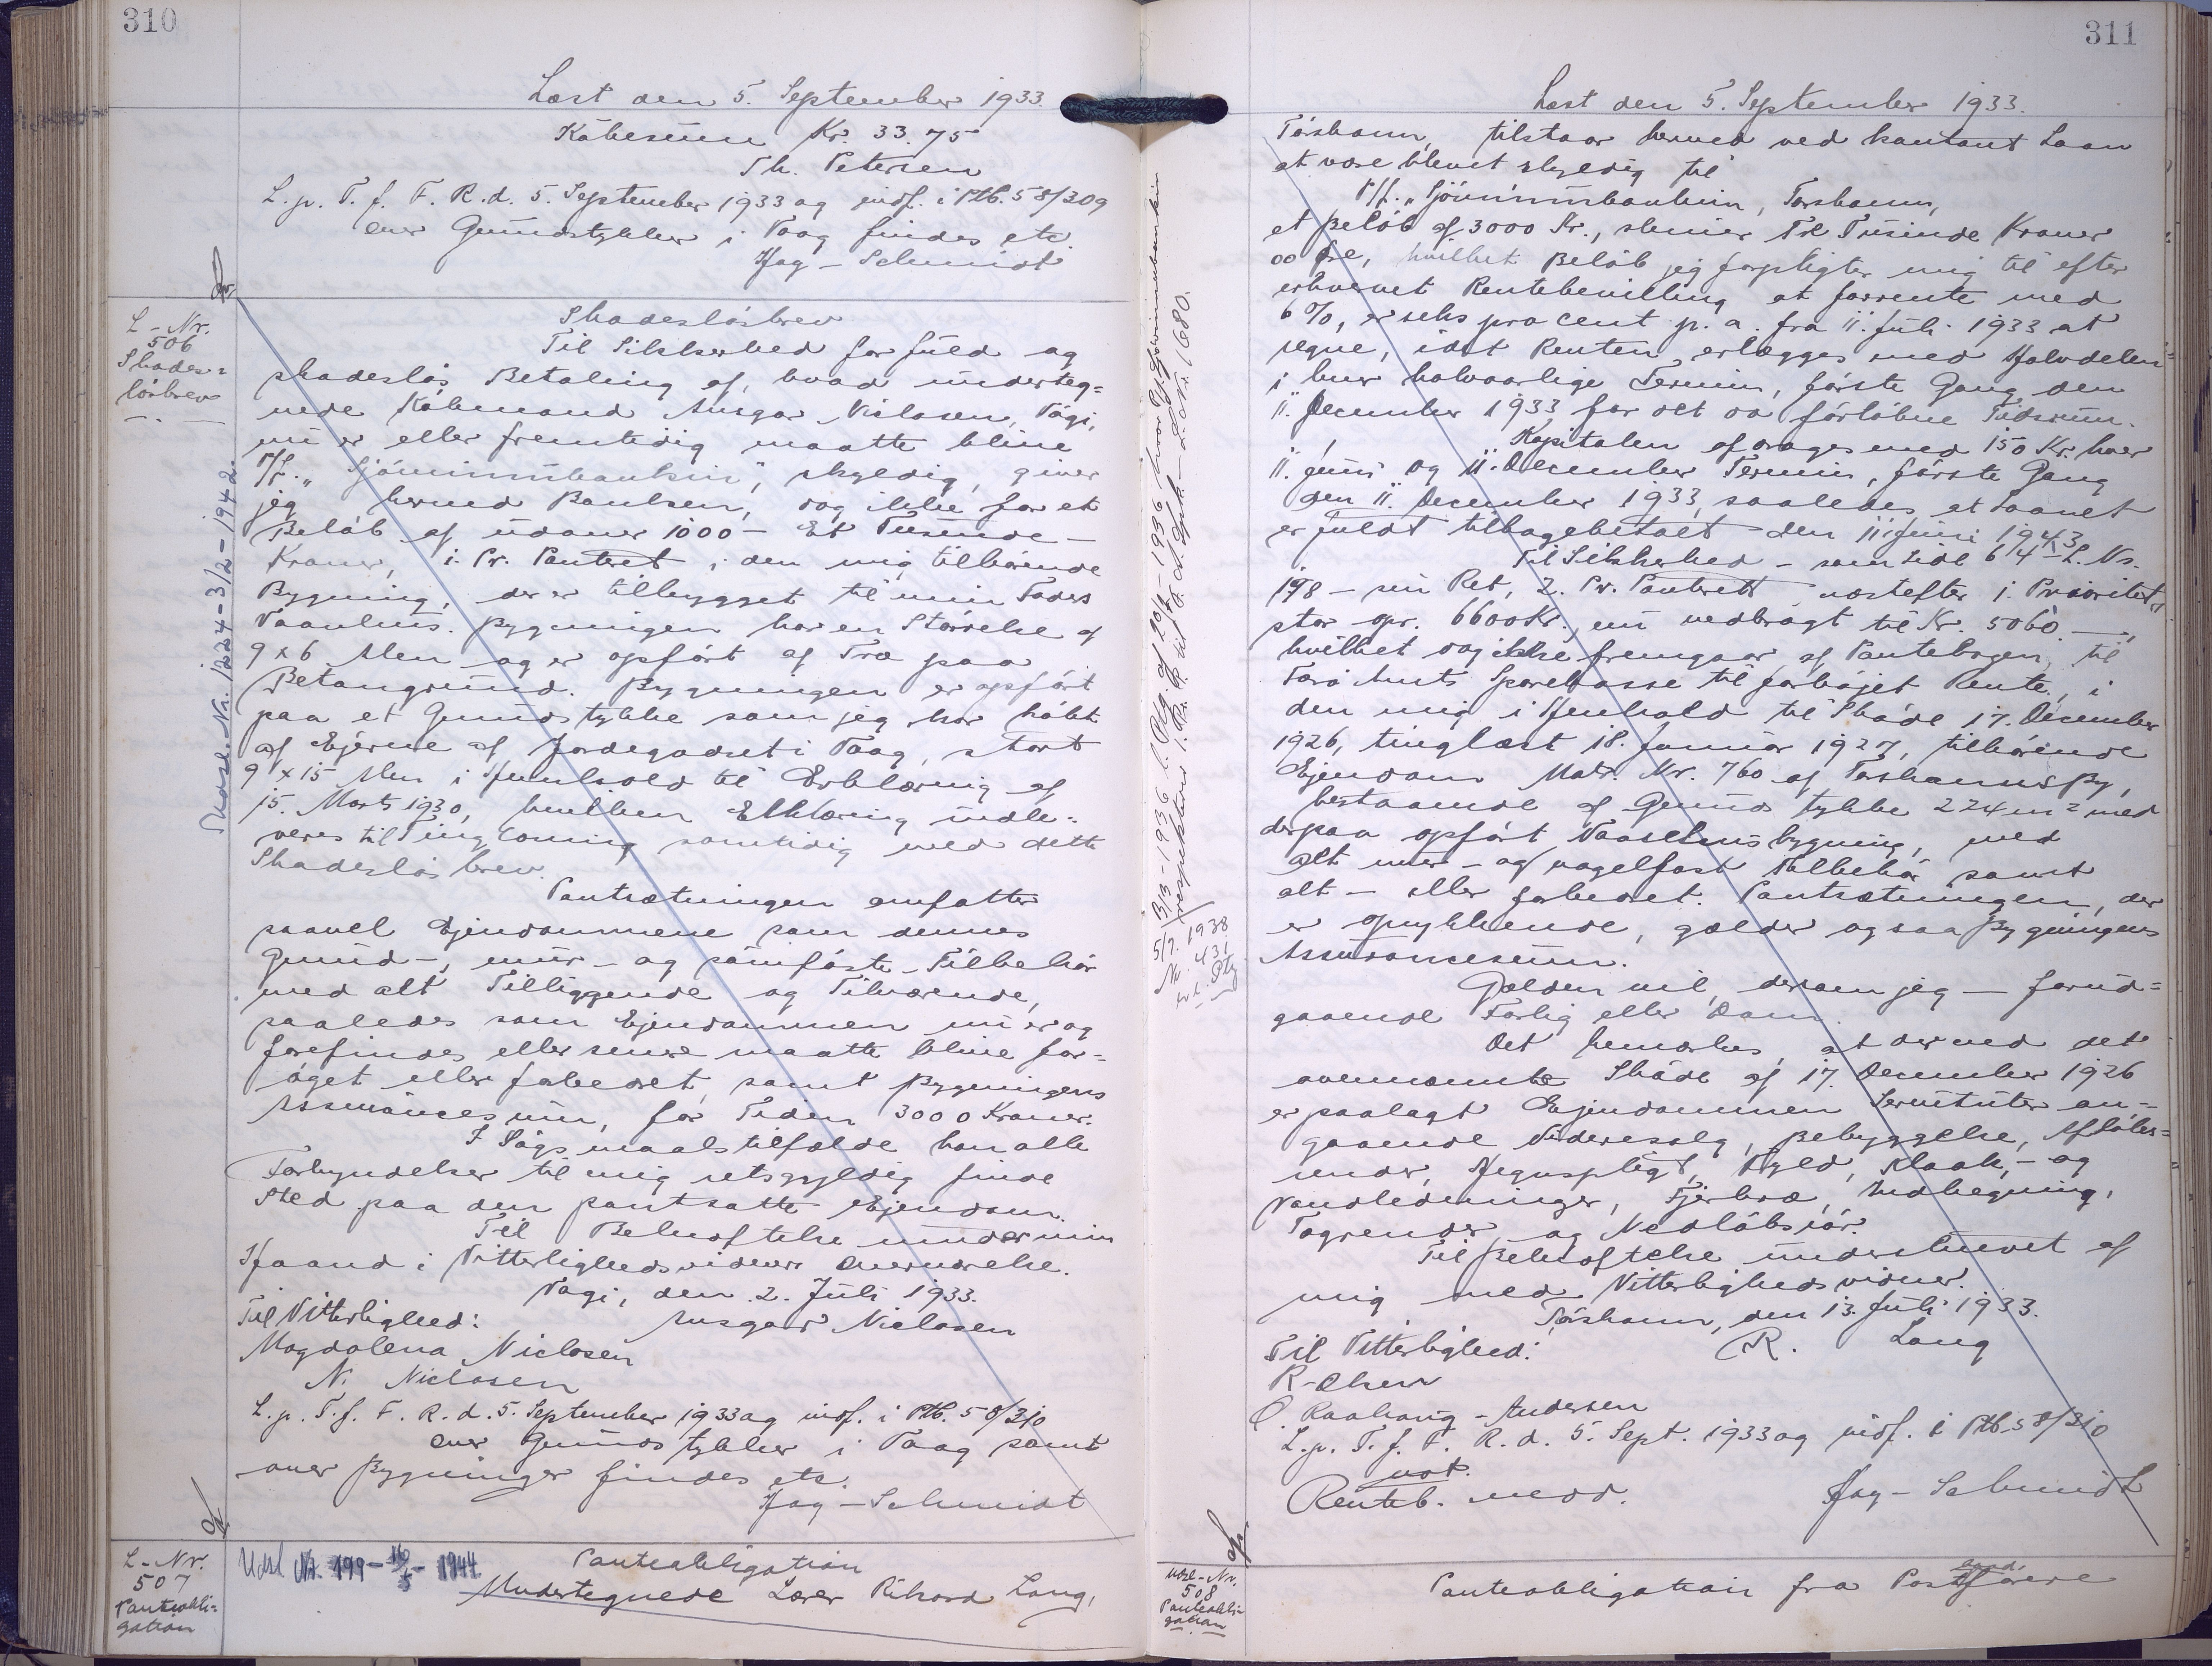 310
Læst den 5. September 1933.
Købesum Kr. 33.75
Th. Petersen
L.p. T. f. F. R. d. 5. September 1933 og indf. i Ptb. 58/309
over Grundstykker i Vaag findes etc.
Hag-Schmidt
L-Nr.
506
Skades=
løsbrev
Skadesløsbrev
Til Sikkerhed for fuld og
skadesløs Betaling af, hvad underteg=
nede Købmand Ansgar Niclasen, Vági,
nu er eller fremtidig maatte blive
P/f. „Sjóvinnubankin", skyldig, giver
jeg herved Banken, dog ikke for et
Beløb af udover 1000 - Et Tusinde -
Kroner, 1. Pr. Panteret i den mig tilhørende
Bygning, der er tilbygget til min Faders
Vaanhus. Bygningen har en Størrelse af
9 x 6 Alen og er opført af Træ paa
Betongrund. Bygningen er opført
paa et Grundstykke som jeg har købt
af Ejerne af Jordegodset i Vaag, stort
9 x 15 Alen i Henhold til Erklæring af
15. Marts 1930, hvilken Erklæring indle=
veres til Tinglæsning samtidig med dette
Skadesløsbrev.
Pantsætningen omfatter
saavel Ejendommene som dennes
Grund-, mur- og sømfaste Tilbehør
med alt Tilliggende og Tilhørende,
saaledes som Ejendommen nu er og
forefindes eller senere maatte blive for=
øget eller forbedret, samt Bygningens
Assurancesum, for Tiden 3000 Kroner.
I Søgsmaalstilfælde kan alle
Forkyndelser til mig retsgyldig finde
Sted paa den pantsatte Ejendom.
Til Bekræftelse under min
Haand i Vitterlighedsvidners Overværelse.
Vági, den 2. Juli 1933.
Til Vitterlighed: Ansgar Niclasen
Magdalena Niclasen
N. Niclasen
L.p. T. f. F. R. d. 5. September 1933 og indf. i Ptb. 58/310
over Grundstykker i Vaag samt
over Bygninger findes etc.
Hag-Schmidt
L-Nr.
507
Panteobli=
gation
Udsl Nr. 199 - 16/5 - 1944
Panteobligation
Undertegnede Lærer Rikard Long,
311
Læst den 5. September 1933.
Tórshavn, tilstaar herved ved kontant Laan
at være blevet skyldig til
P/f. „Sjóvinnubankin, Tórshavn,
et Beløb af 3000 Kr., skriver Tre Tusinde Kroner
00 Øre, hvilket Beløb jeg forpligter mig til efter
erhvervet Rentebevilling at forrente med
6%, er seks pro cent p. a. fra 11. Juli 1933 at
regne, idet Renten erlægges med Halvdelen
i hver halvaarlige Termin, første Gang den
11. December 1933 for det da forløbne Tidsrum.
Kapitalen afdrages med 150 Kr. hver
11. Juni og 11. December Termin, første Gang
den 11. December 1933, saaledes at Laanet
er fuldt tilbagebetalt den 11 Juni 1943.
Til Sikkerhed - som Side 64 L. Nr.
198 - min Ret, 2. Pr. Panteret næstefter 1. Prioritet,
stor opr. 6600 Kr. nu nedbragt til Kr. 5060 -,
hvilket dog ikke fremgaar af Pantebogen, til
Færø Amts Sparekasse til forhøjet Rente, i
den mig i Henhold til Skøde 17. December
1926, tinglæst 18. Januar 1927, tilhørende
Ejendom Matr. Nr. 760 af Torshavns By,
bestaaende af Grundstykke 224 m² med
derpaa opført Vaaningshusbygning, med
alt mur- og nagelfast Tilbehør samt
alt - eller forbedret. Pantsætningen, der
er oprykkende, gælder ogsaa Bygningens
Assurancesum.
Gælden vil, dersom jeg - forud=
gaaende Forlig eller Dom.
Det bemærkes, at der ved det
ovennævnte Skøde af 17. December 1926
er paalagt Ejendommen Servituter an=
gaaende Videresalg, Bebyggelse, Afløbs=
render, Hegnspligt, Fyld, Kloak- og
Vandledninger, Fjerkræ, Indhegning,
Tagrender og Nedløbsrør.
Til Bekræftelse underskrevet af
mig med Vitterlighedsvidner.
Tórshavn, den 13. Juli 1933.
Til Vitterlighed: R. Long
R-Olsen
O. Raahaug-Andersen
L.p. T. f. F. R. d. 5. Sept. 1933 og indf. i Ptb. 58/310
not.
Renteb. medd. Hag-Schmidt
Udsl-Nr.
508
Panteobli-
gation
Panteobligation fra Postfører
Skadesl. Nr. 1224 - 3/2 - 1942.
5/7. 1938
Nr. 431